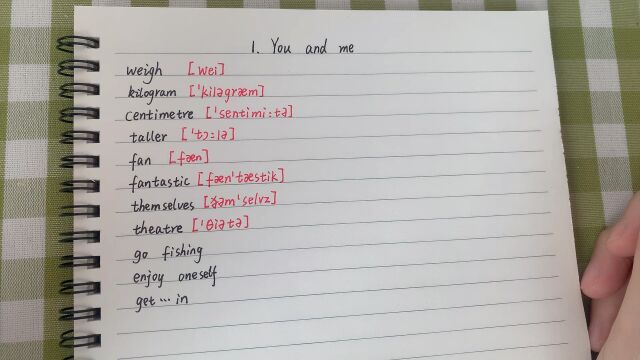 1. You and me
weigh [wei]
kilogram ['kiləgræm]
centimetre ['sentimi:tə]
taller ['tɔ:lə]
fan [fæn]
fantastic [fæn'tæstik]
themselves [ðəm'selvz]
theatre ['θiətə]
go fishing
enjoy oneself
get…in